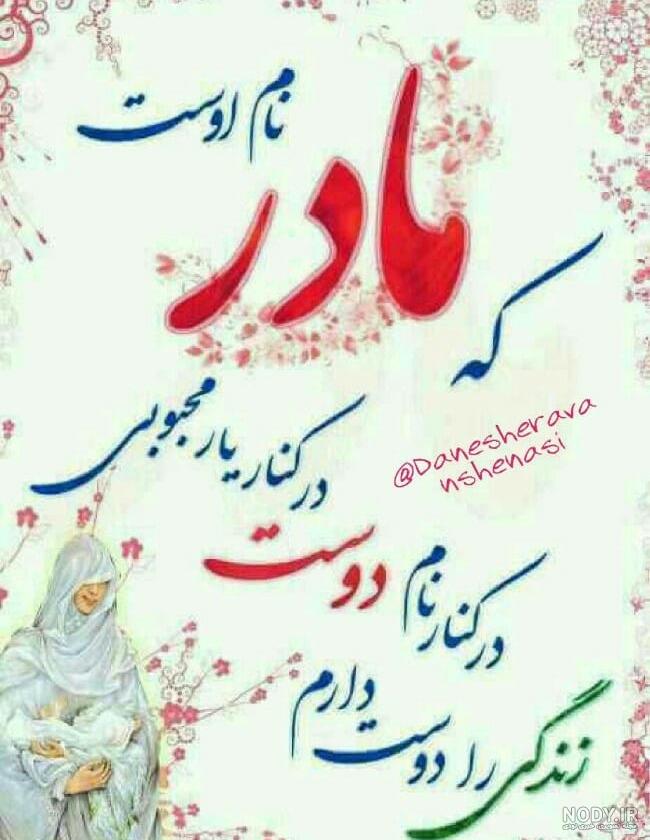 نام اوست
مادر
که
در کنار یار محبوبی
@Danesherava
nshenasi
در کنار نام دوست
زندگی را دوست دارم
NODY.IR